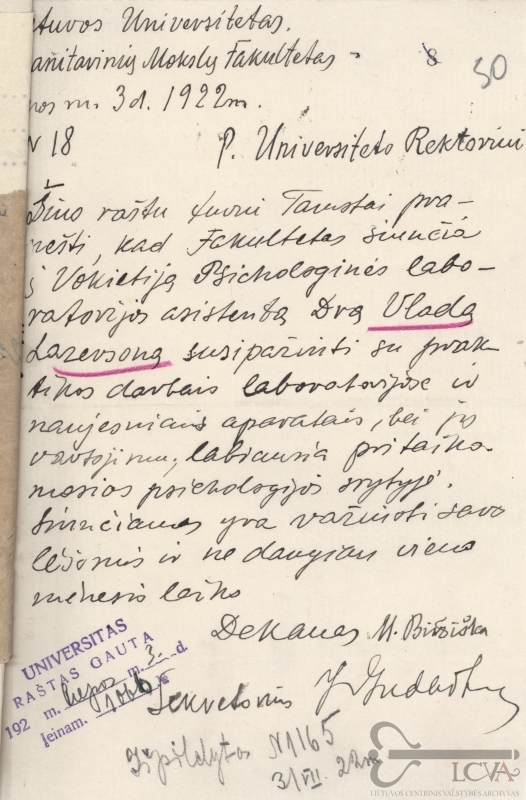 tuvos Universitetas.
anitarinių Mokslų Fakultetas -
8
50
nos m. 3 d. 1922 m.
N 18
P. Universiteto Rektoriui
Šiuo raštu turiu Tamstai pra-
nešti, kad Fakultetas siunčia
į Vokietiją Psichologinės labo-
ratorijos asistentą Drą Vladą
Lazersoną susipažinti su prak-
tikos darbais laboratorijose ir
naujesniais aparatais, bei jų
vartojimu, labiausia pritaiko-
mosios psichologijos srytyje.
Siunčiamas yra važiuoti savo
lėšomis ir ne daugiau vieno
mėnesio laiko
Dekanas M. Biržiška
Sekretorius
UNIVERSITAS
RAŠTAS GAUTA
192 m. m. 3. d.
Įeinam. 1066 №
Išpildytas N1165
31/VII 22 m
LCVA
LIETUVOS CENTRINIS VALSTYBĖS ARCHYVAS